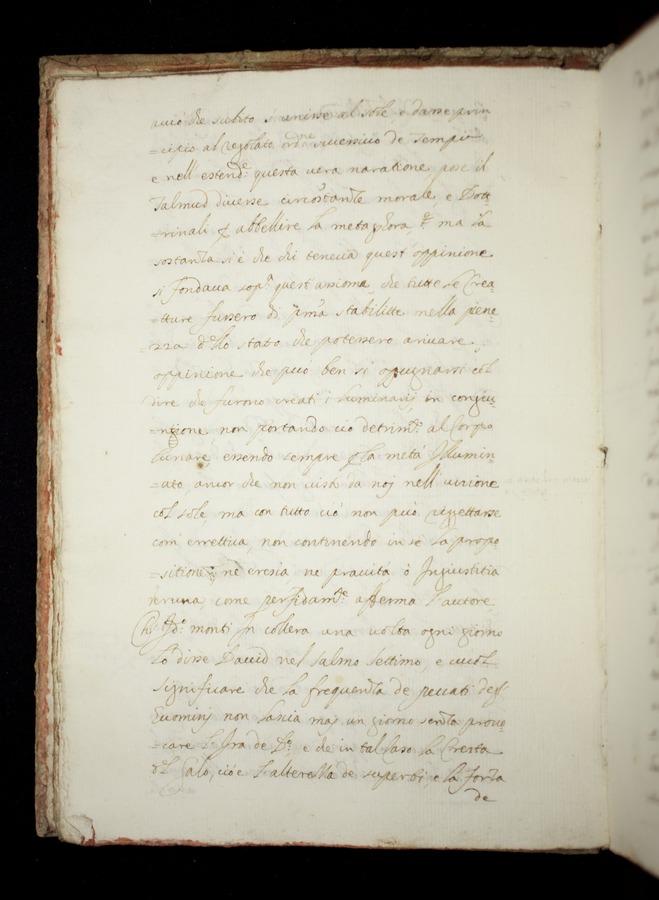 acciò che subito si unisse al sole, e dasse prin
=cipio al regolato ord.ne successivo de Tempi
e nell estend.e questa vera naratione pose il
Talmud diverse circostantie morale, e Dott
=rinali p abbellire la metaphora, &c. ma la
sostantia si è che chi teneva quest'oppinione
si fondava sop.a quest'assioma, che tutte le Crea=
=tture fussero di p.ma stabilitte nella piene
=zza dello stato che potessero arivare,
oppinione che può ben si oppugnarsi col
dire che furono creati i luminarij in congiu=
=ntione, non portando ciò detrim.to al Corpo
lunare, essendo sempre p la metà Illumin=
=ato, ancor che non vista da noj nell'unione
col sole, ma con tutto ciò non può riggettarse
com'erettica, non continendo in se la propo
=sitione nè eresia, ne pravità ò Ingiustitia
veruna, come perfidam.te afferma l'autore
Che Id.o monti In collera una volta ogni giorno
Lo disse David nel salmo settimo, e vuol
significare che la frequentia de peccati degl'
Huominj non lascia maj un giorno sentia provo=
=care l'Ira de D.o e che in tal Caso la Cresta
del Galo, cioè l'alterezza de superbi, e la fortia
de